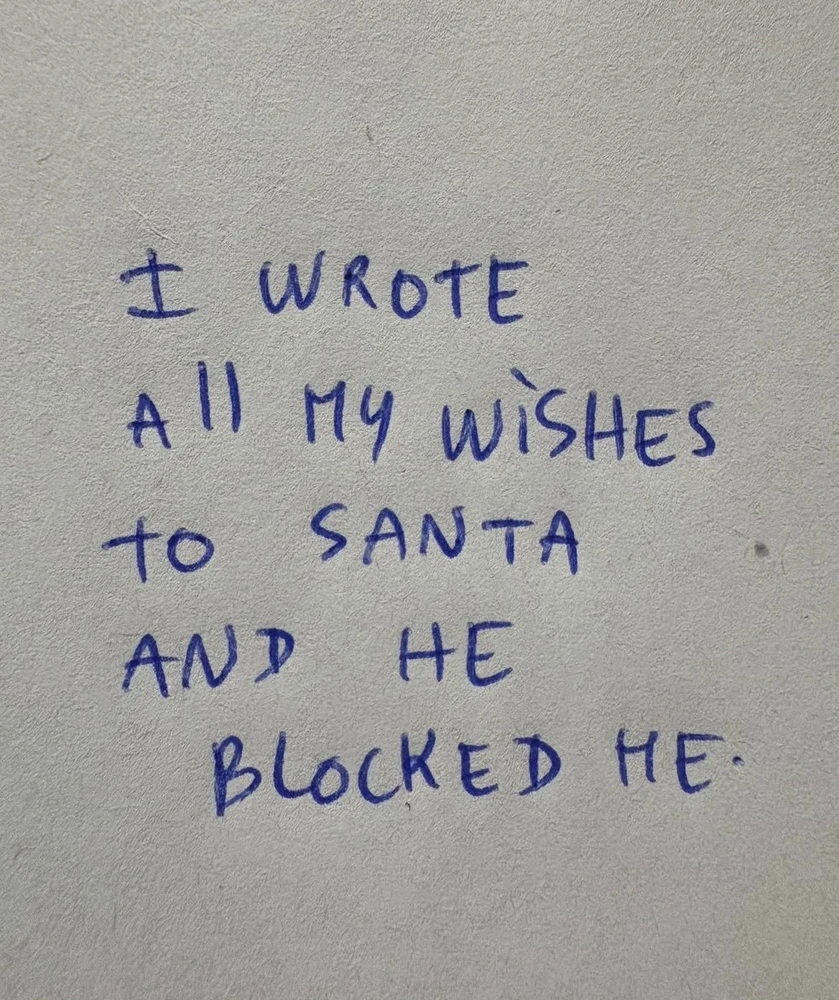 I WROTE
All MY WiSHES
to SANTA
AND HE
BLOCKED ME.